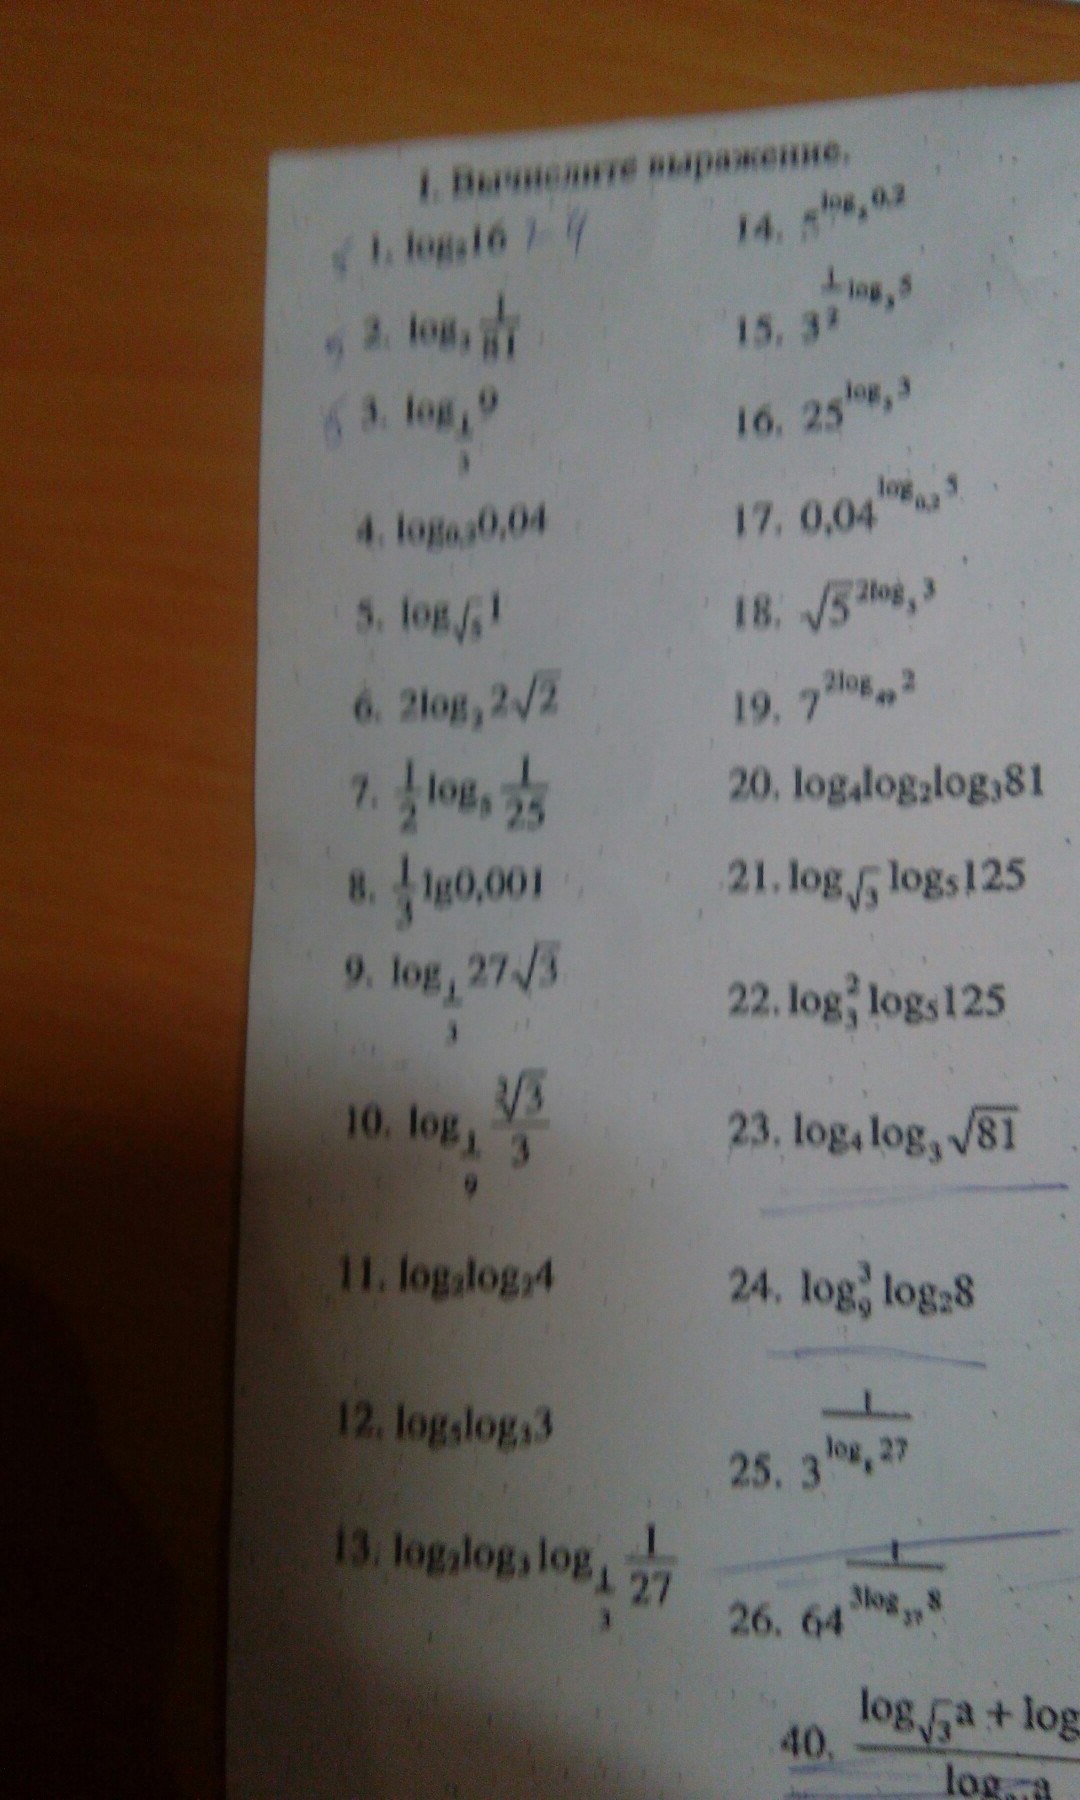 I. Вычислите выражение.
1. log₂16
2. log₃ 1/81
3. log_{1/3} 9
4. log_{0,2}0,04
5. log_{√5} 1
6. 2log₂ 2√2
7. 1/2 log₅ 1/25
8. 1/3 lg0,001
9. log_{1/3} 27√3
10. log_{1/9} ∛3/3
11. log₂log₂4
12. log₅log₃3
13. log₂log₃ log_{1/3} 1/27
14. 5^{log₅ 0,2}
15. 3^{1/2 log₃ 5}
16. 25^{log₅ 3}
17. 0,04^{log_{0,2} 5}
18. √5^{2log₅ 3}
19. 7^{2log₄₉ 2}
20. log₄log₂log₃81
21. log_{√3} log₅125
22. log²₃ log₅125
23. log₄ log₃ √81
24. log³₉ log₂8
25. 3^{1/log₈ 27}
26. 64^{1/3log₂₇ 8}
40. log_{√3} a + log
log a